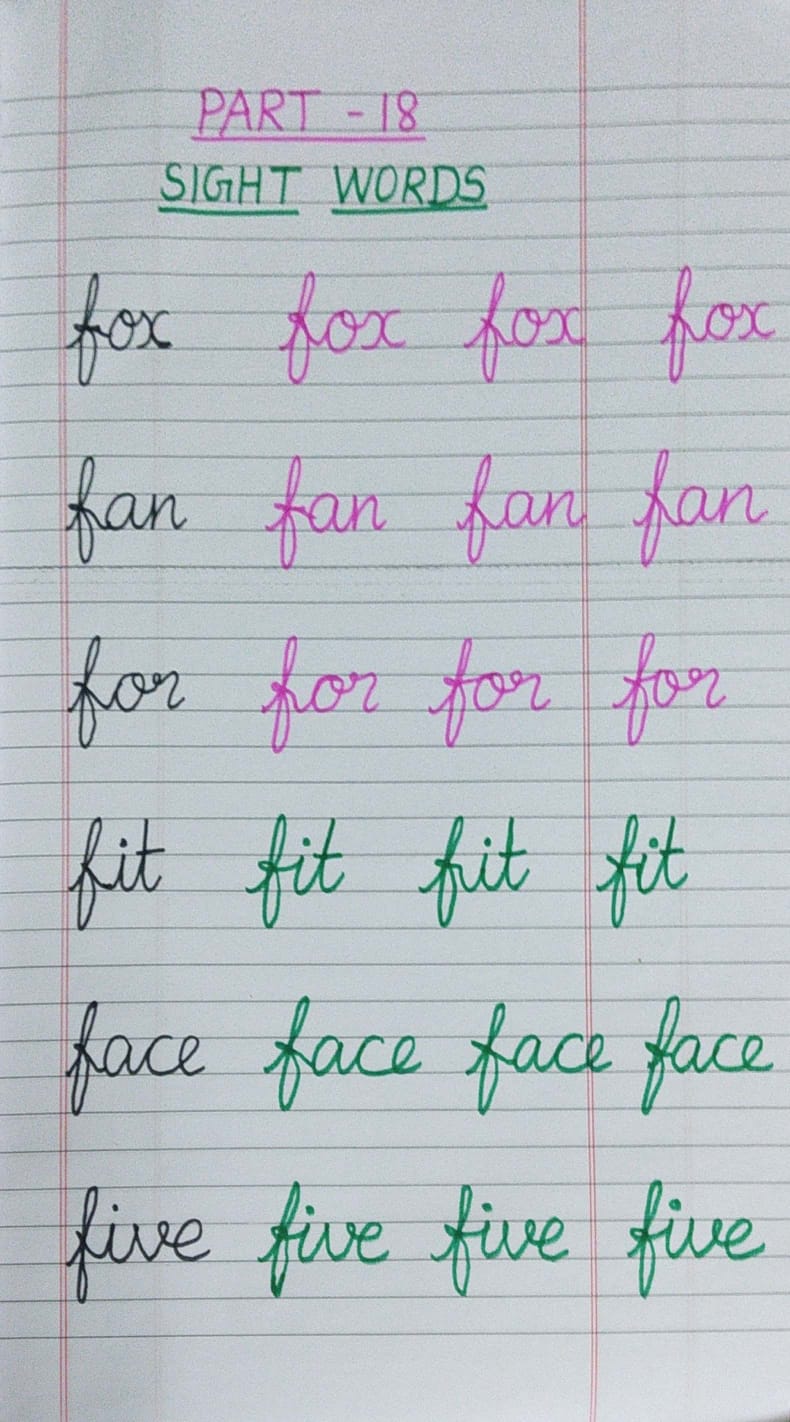 PART - 18
SIGHT WORDS
fox fox fox fox
fan fan fan fan
for for for for
fit fit fit fit
face face face face
five five five five